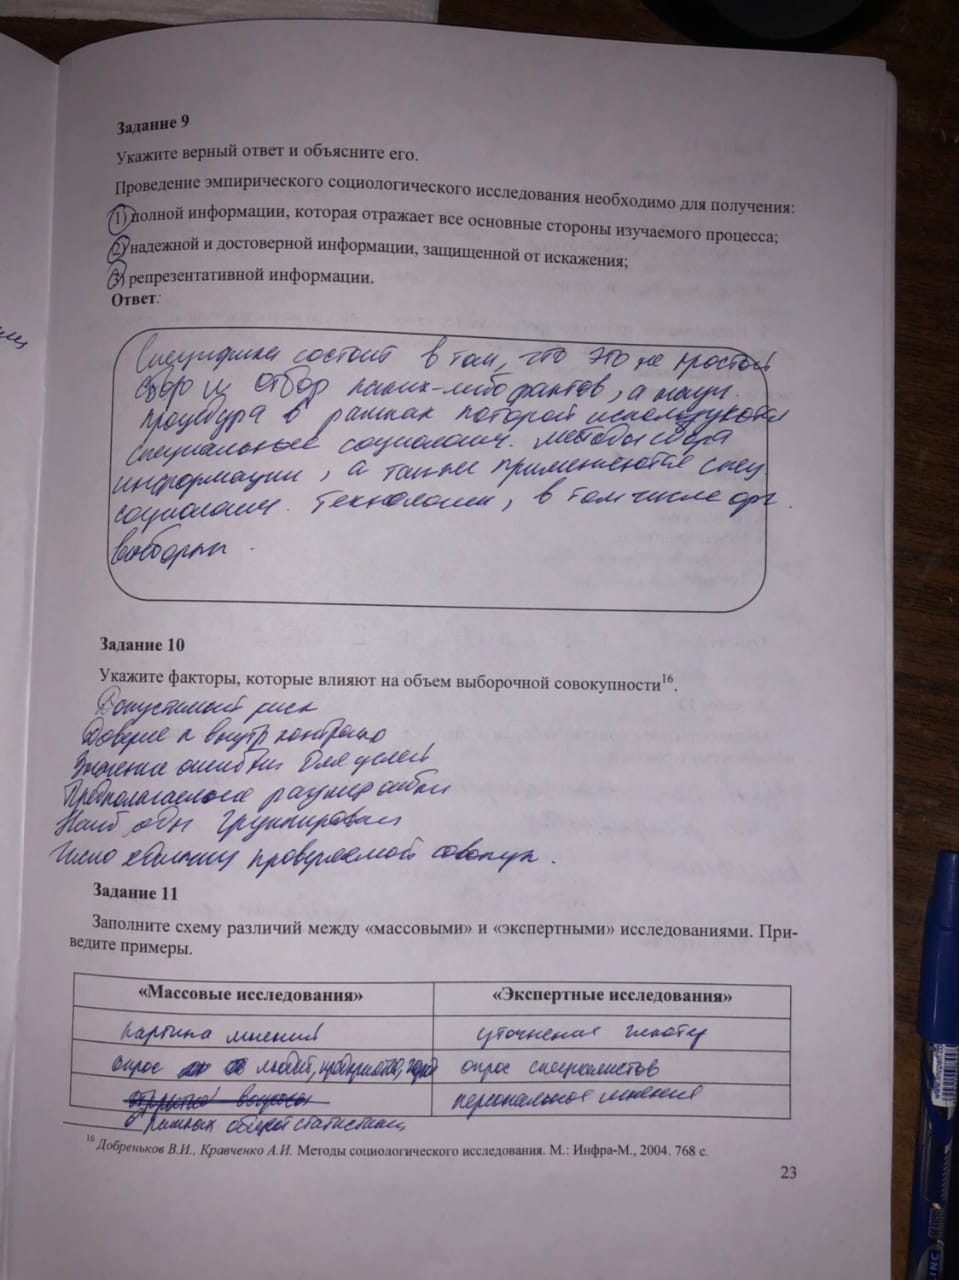 Задание 9
Укажите верный ответ и объясните его.
Проведение эмпирического социологического исследования необходимо для получения:
1) полной информации, которая отражает все основные стороны изучаемого процесса;
2) надежной и достоверной информации, защищенной от искажения;
3) репрезентативной информации.
Ответ:
Специфика состоит в том, что это не простой
сбор и отбор каких-либо фактов, а научн.
процедура в рамках которой используются
специальные социологич. методы сбора
информации, а также применяются спец.
социологич. технологии, в том числе
выборки.
Задание 10
Укажите факторы, которые влияют на объем выборочной совокупности16.
Допустимый риск
Доверие к внутр контролю
ошибки для целей
Предполагаемое
Число проверяемой совокуп.
Задание 11
Заполните схему различий между «массовыми» и «экспертными» исследованиями. При-
ведите примеры.
«Массовые исследования» «Экспертные исследования»
картина мнений уточнение
опрос людей, предприятий, опрос специалистов
персональное мнение
в рамках статистики
16 Добреньков В.И., Кравченко А.И. Методы социологического исследования. М.: Инфра-М., 2004. 768 с.
23